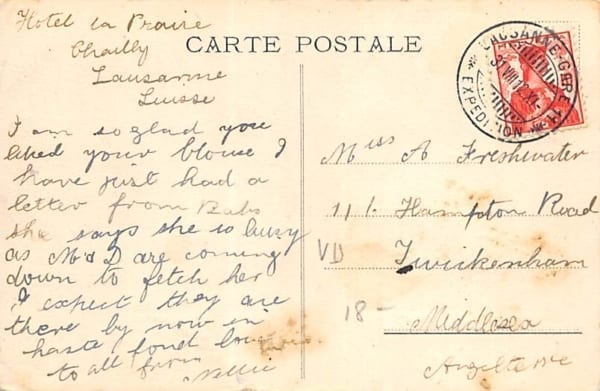 Hotel La Prairie
Chailly
Lausanne
Suisse
I am so glad you
liked your blouse I
have just had a
letter from Babs
she says she is busy
as M & D are coming
down to fetch her
I expect they are
there by now in
haste fond love
to all from
Nellie
CARTE POSTALE
LAUSANNE-GARE
EXPEDITION
Miss A Freshwater
111. Hampton Road
Twickenham
Middlesex
Angleterre
VD
18-